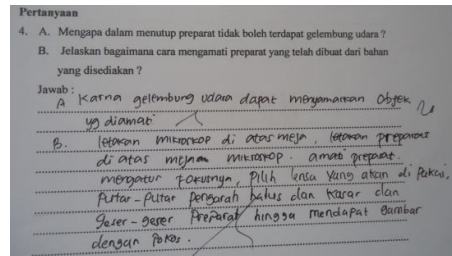 Pertanyaan
4. A. Mengapa dalam menutup preparat tidak boleh terdapat gelembung udara ?
B. Jelaskan bagaimana cara mengamati preparat yang telah dibuat dari bahan
yang disediakan ?
Jawab :
A Karna gelembung udara dapat menyamarkan Objek
yg diamati
B. letakan mikroskop di atas meja, letakan preparat
di atas meja mikroskop. amati preparat.
mengatur fokusnya, Pilih lensa yang akan di Pakai,
Putar-Putar Pengarah halus dan kasar dan
geser-geser Preparat hingga mendapat gambar
dengan Pokos.